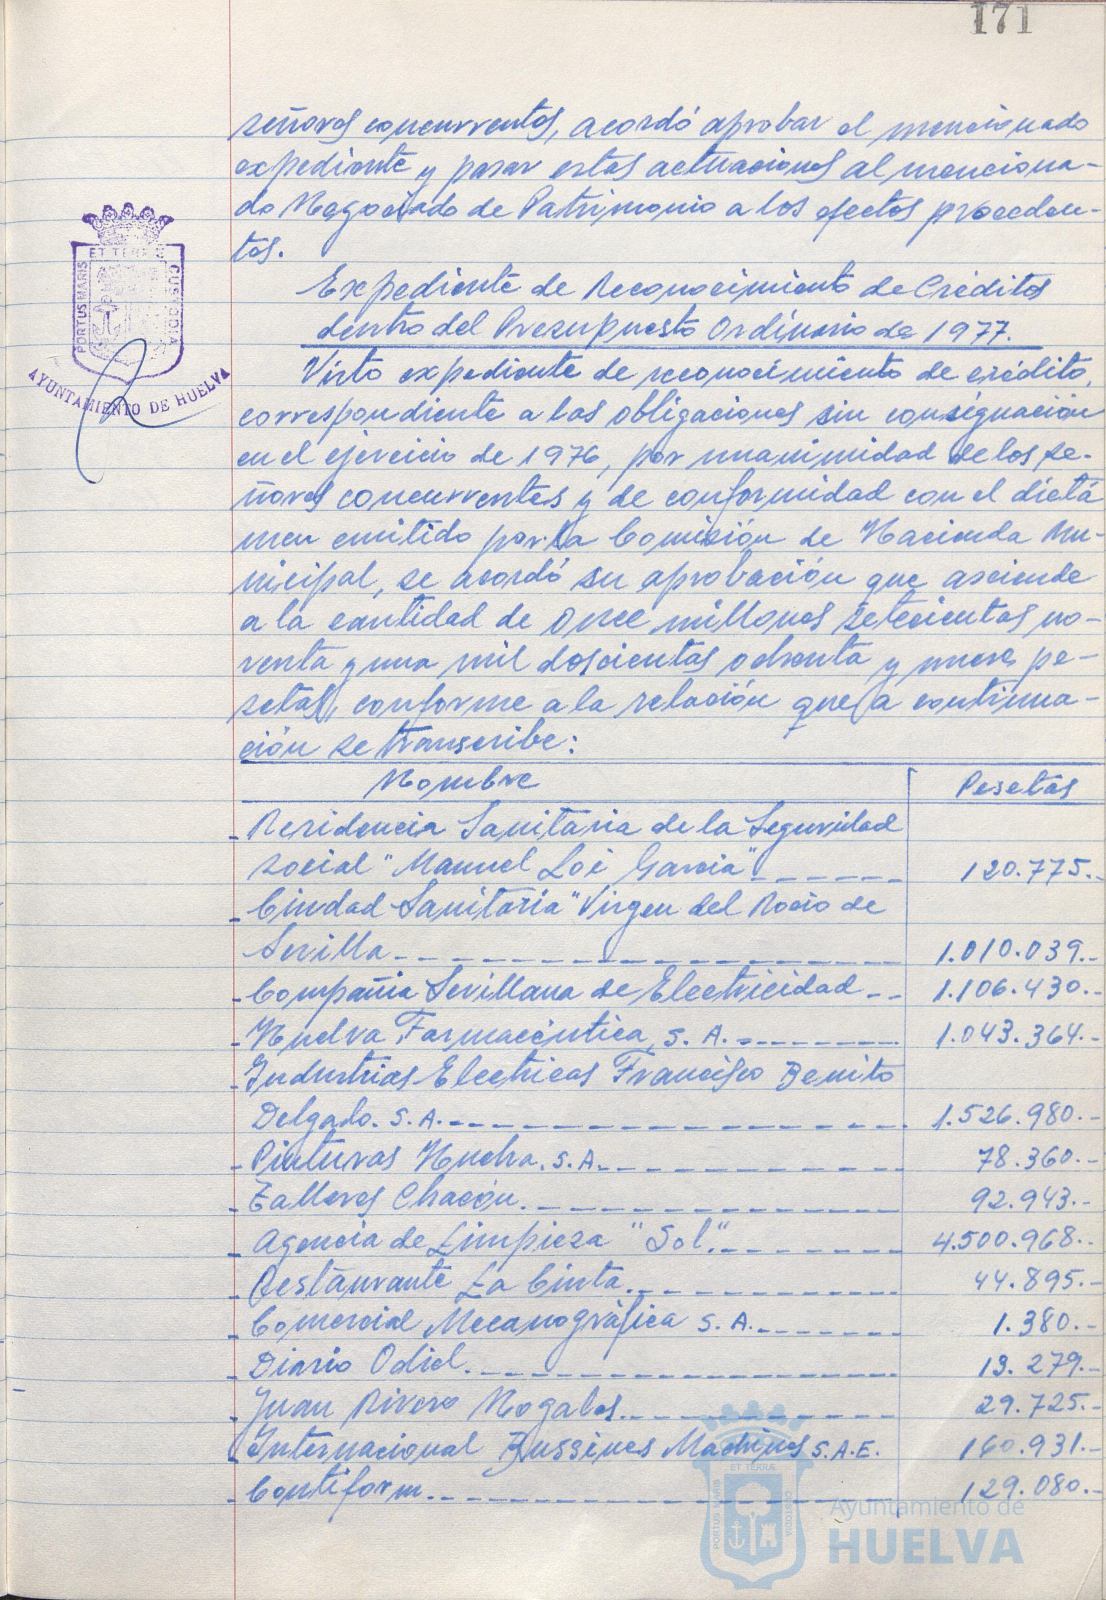 171
señores concurrentes, acordó aprobar el mencionado
expediente y pasar estas actuaciones al menciona-
do Negociado de Patrimonio a los efectos proceden-
tes.
Expediente de Reconocimiento de Créditos
dentro del Presupuesto Ordinario de 1977.
Visto expediente de reconocimiento de crédito,
correspondiente a las obligaciones sin consignación
en el ejercicio de 1976, por unanimidad de los se-
ñores concurrentes y de conformidad con el dictá
men emitido por la Comisión de Hacienda Mu-
nicipal, se acordó su aprobación que asciende
a la cantidad de Once millones setecientas no-
venta y una mil doscientas ochenta y nueve pe-
setas, conforme a la relación que a continua-
ción se transcribe:
Nombre Pesetas
- Residencia Sanitaria de la Seguridad
Social "Manuel Loi Garcia" 120.775.-
- Ciudad Sanitaria "Virgen del Rocio de
Sevilla 1.010.039.-
- Compañia Sevillana de Electricidad 1.106.430.-
- Huelva Farmacéutica, S.A. 1.043.364.-
- Industrias Electricas Francisco Benito
Delgado. S.A. 1.526.980.-
- Pinturas Hucha. S.A. 78.360.-
- Talleres Chacón. 92.943.-
- Agencia de Limpieza "Sol" 4.500.968.-
- Restaurante La Cinta. 44.895.-
- Comercial Mecanográfica S.A. 1.380.-
- Diario Odiel. 13.279.-
- Juan Rivero Nogales. 29.725.-
- Internacional Bussines Machines S.A.E. 160.931.-
- Contiform. 129.080.-
PORTUS MARIS ET TERRE CUSTODIA
AYUNTAMIENTO DE HUELVA
PORTUS MARIS ET TERRÆ CUSTODIA
Ayuntamiento de
HUELVA